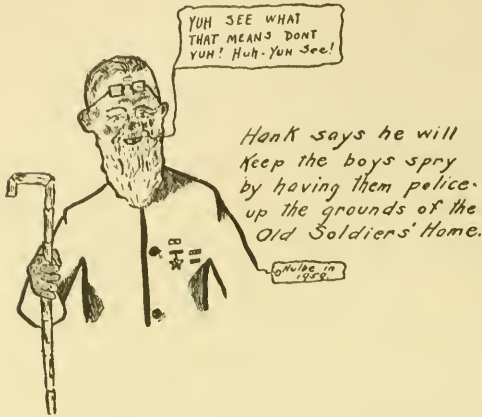 YUH SEE WHAT
THAT MEANS DONT
YUH! Huh-Yuh See!
Hank says he will
Keep the boys spry
by having them police-
up the grounds of the
Old Soldiers' Home.
in
1959